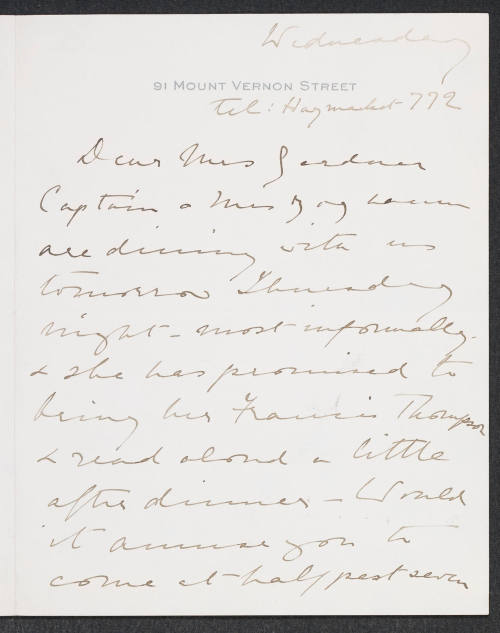 Wednesday
91 MOUNT VERNON STREET
Tel: Haymarket 772
Dear Mrs Gardner
Captain & Mrs
are dining with us
tomorrow Thursday
night - most informally.
& she has promised to
bring her Francis Thompson
& read aloud a little
after dinner - Would
it amuse you to
come at half past seven